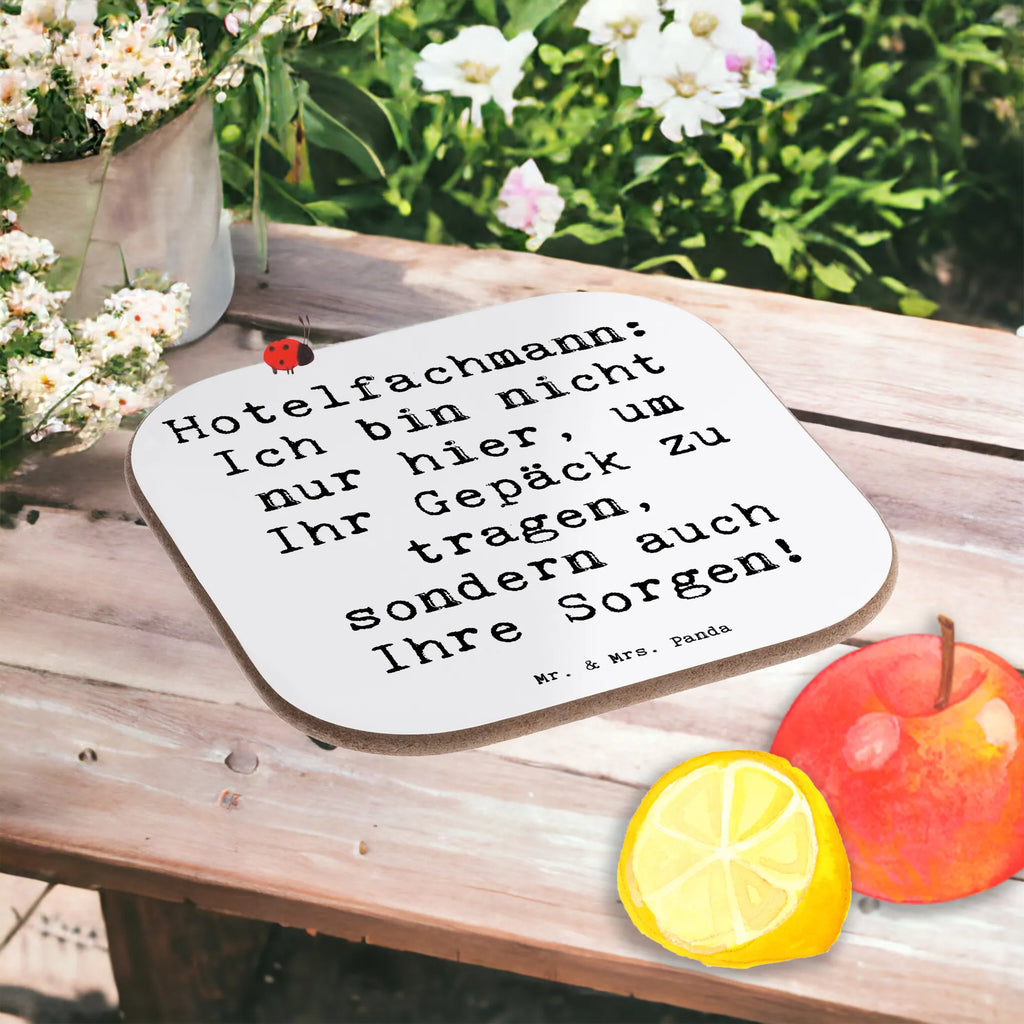 Hotelfachmann:
Ich bin nicht
nur hier, um
Ihr Gepäck zu
tragen,
sondern auch
Ihre Sorgen!
Mr. & Mrs. Panda